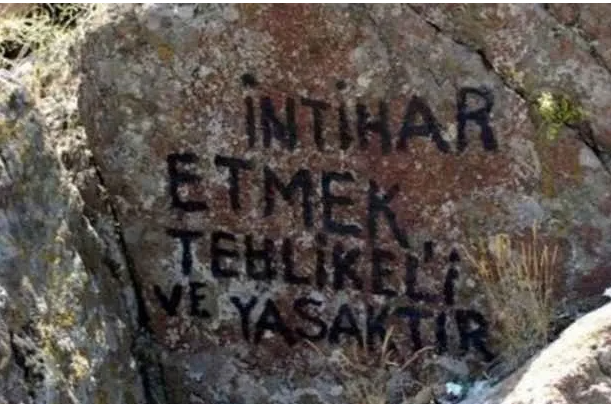 İNTİHAR
ETMEK
TEHLİKEL'İ
VE YASAKTIR